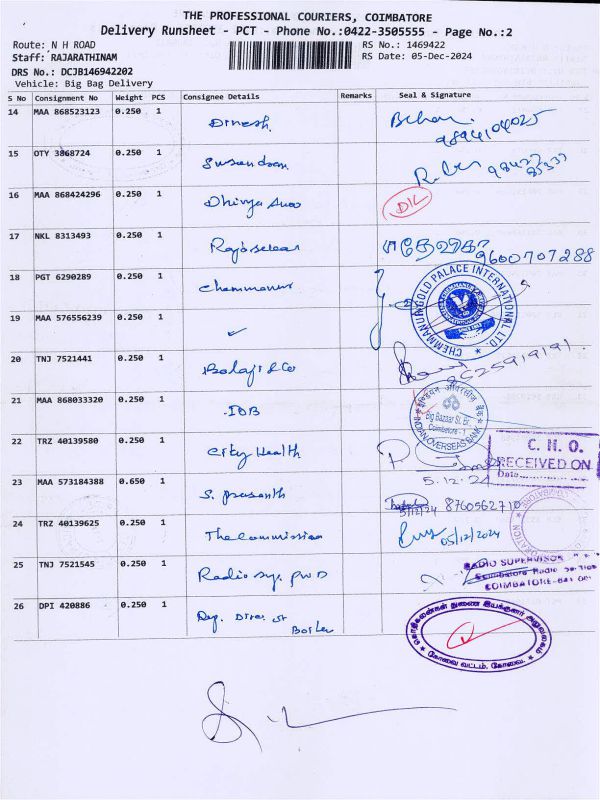 THE PROFESSIONAL COURIERS, COIMBATORE
Delivery Runsheet - PCT - Phone No.:0422-3505555 - Page No.:2
Route: N H ROAD RS No.: 1469422
Staff: RAJARATHINAM RS Date: 05-Dec-2024
DRS No.: DCJB146942202
Vehicle: Big Bag Delivery
S No Consignment No Weight PCS Consignee Details Remarks Seal & Signature
14 MAA 868523123 0.250 1 Dinesh 9894104025
15 OTY 3868724 0.250 1
16 MAA 868424296 0.250 1 Dhivya
17 NKL 8313493 0.250 1 9600707288
18 PGT 6290289 0.250 1 Chemmanur
CHEMMANUR GOLD PALACE INTERNATIONAL LTD.
19 MAA 576556239 0.250 1
20 TNJ 7521441 0.250 1 Balaji & Co
21 MAA 868033320 0.250 1 IOB
इण्डियन ओवरसीज़ बैंक
Big Bazaar St. Br.
Coimbatore - 1
INDIAN OVERSEAS BANK
22 TRZ 40139580 0.250 1 City Health
C. H. O.
RECEIVED ON
Date
5.12.24
23 MAA 573184388 0.650 1 S. Prasanth 5/12/24 8760562710
24 TRZ 40139625 0.250 1 The Commission 05/12/2024
25 TNJ 7521545 0.250 1 Radio Sup. PWD
RADIO SUPERVISOR
Coimbatore Radio
26 DPI 420886 0.250 1 Dep. Direc of Boiler
தொழிலகங்கள் துணை இயக்குனர் அலுவலகம்
கோவை வட்டம், கோவை.